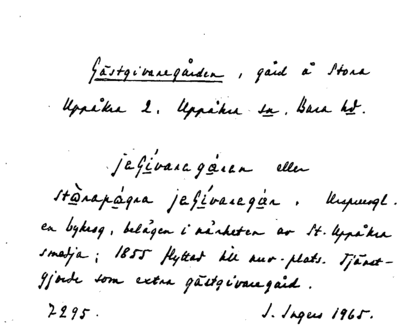 Gästgivaregården, gård å Stora
Uppåkra 2, Uppåkra sn, Bara hd.
jeǥívaregáren eller
stòrapágra jeǥívaregár. Urspungl.
en bykrog, belägen i närheten av St. Uppåkra
smedja; 1855 flyttad till nuv. plats. Tjänst-
gjorde som extra gästgivaregård.
7295. I. Ingers 1965.